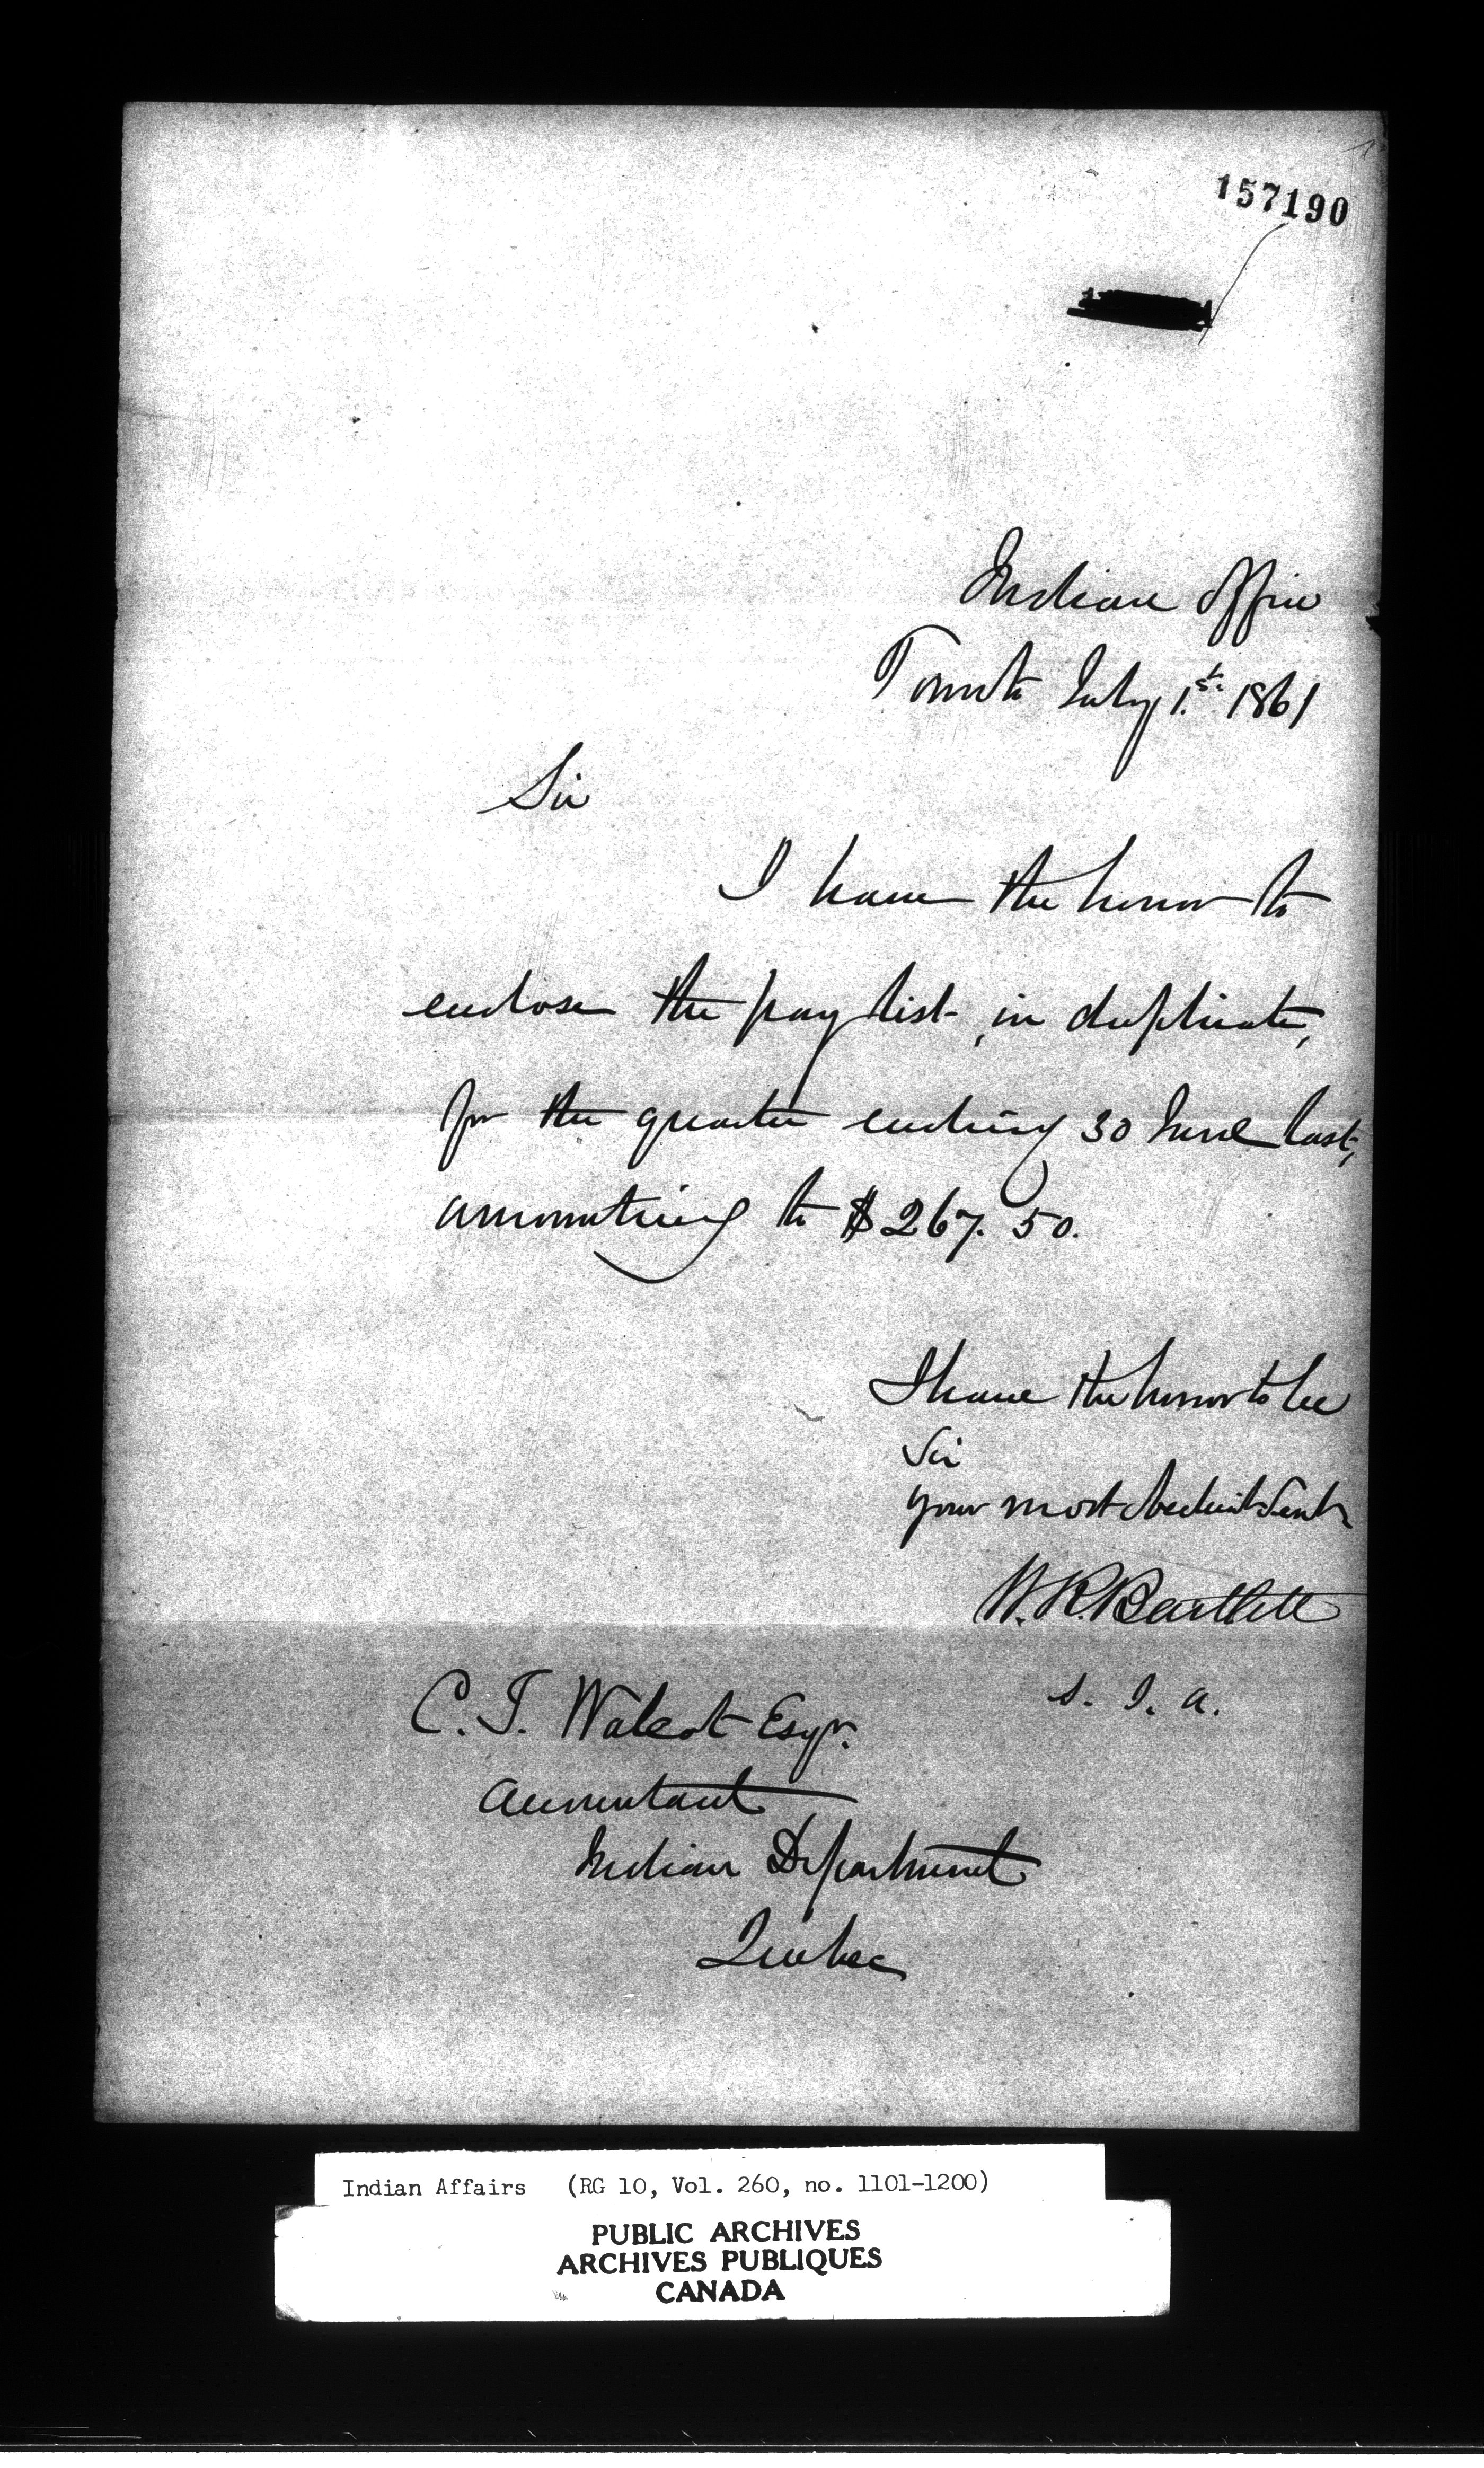 157190
Indian Office
Toronto July 1.st 1861
Sir
I have the honor to
enclose the pay list, in duplicate,
for the quarter ending 30 June last,
amounting to $267.50.
I have the honor to be
Sir
your most obedient Servt
W. R. Bartlett
S. I. A.
C. T. Walcot Esqr.
Accountant
Indian Department
Quebec
Indian Affairs (RG 10, Vol. 260, no. 1101-1200)
PUBLIC ARCHIVES
ARCHIVES PUBLIQUES
CANADA